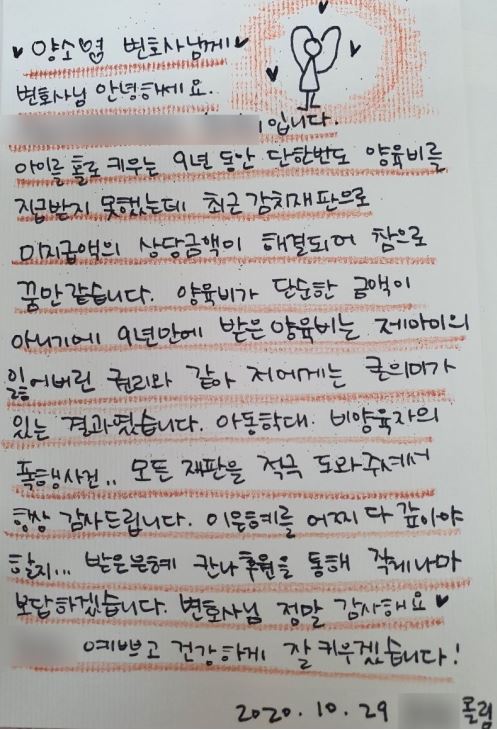 ♥ 양소영 변호사님께 ♥
변호사님 안녕하세요.
입니다.
아이를 홀로 키우는 9년 동안 단한번도 양육비를
지급받지 못했는데 최근 감치재판으로
미지급액의 상당금액이 해결되어 참으로
꿈만 같습니다. 양육비가 단순한 금액이
아니기에 9년만에 받은 양육비는 제아이의
잃어버린 권리와 같아 저에게는 큰의미가
있는 결과였습니다. 아동학대. 비양육자의
폭행사건.. 모든 재판을 적극 도와주셔서
항상 감사드립니다. 이은혜를 어찌 다 갚아야
할지... 받은은혜 칸나후원을 통해 작게나마
보답하겠습니다. 변호사님 정말 감사해요 ♥
예쁘고 건강하게 잘 키우겠습니다!
2020. 10. 29 올림